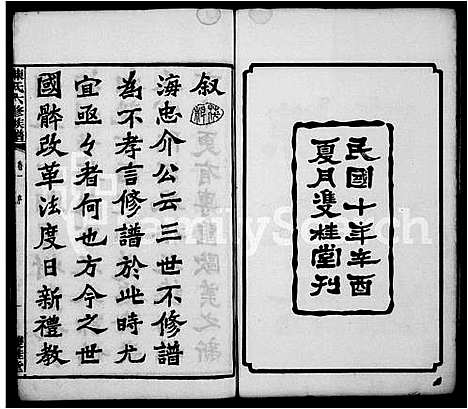 民國十年辛酉
夏月雙桂堂刊
叙
海忠介公云三世不修譜
為不孝言修譜於此時尤
宜亟々者何也方今之世
國體改革法度日新禮教
陳氏六修族譜
卷一
序
一
雙桂堂
FamilySearch